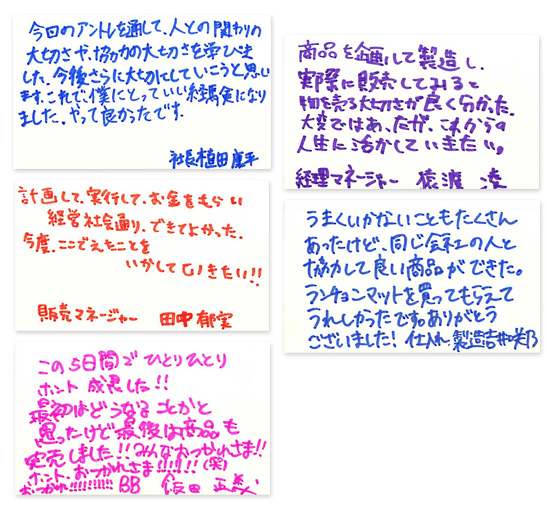 今回のアントレを通して、人との関わりの
大切さや、協力の大切さを学びま
した。今後さらに大切にしていこうと思い
ます。これで、僕にとっていい経験になり
ました。やって良かったです。
社長 植田
計画して、実行して、お金をもらい
経営社会通り、できてよかった。
今度、ここでえたことを
いかしていきたい!!
販売マネージャー 田中 郁実
この5日間でひとりひとり
ホント 成長した!!
最初はどうなることかと
思ったけど最後は商品も
完売しました!!みんなおつかれさま!!
ホント、おつかれさま!!!!!!(笑)
おつかれ!!!!!!!!!! BB 飯田
商品を企画して製造し、
実際に販売してみると
物を売る大切さが良く分かった。
大変ではあったが、これからの
人生に活かしていきたい。
経理マネージャー 猿渡 凌
うまくいかないこともたくさん
あったけど、同じ会社の人と
協力して良い商品ができた。
ランチョンマットを買ってもらえて
うれしかったです。ありがとう
ございました! 仕入れ・製造 吉井